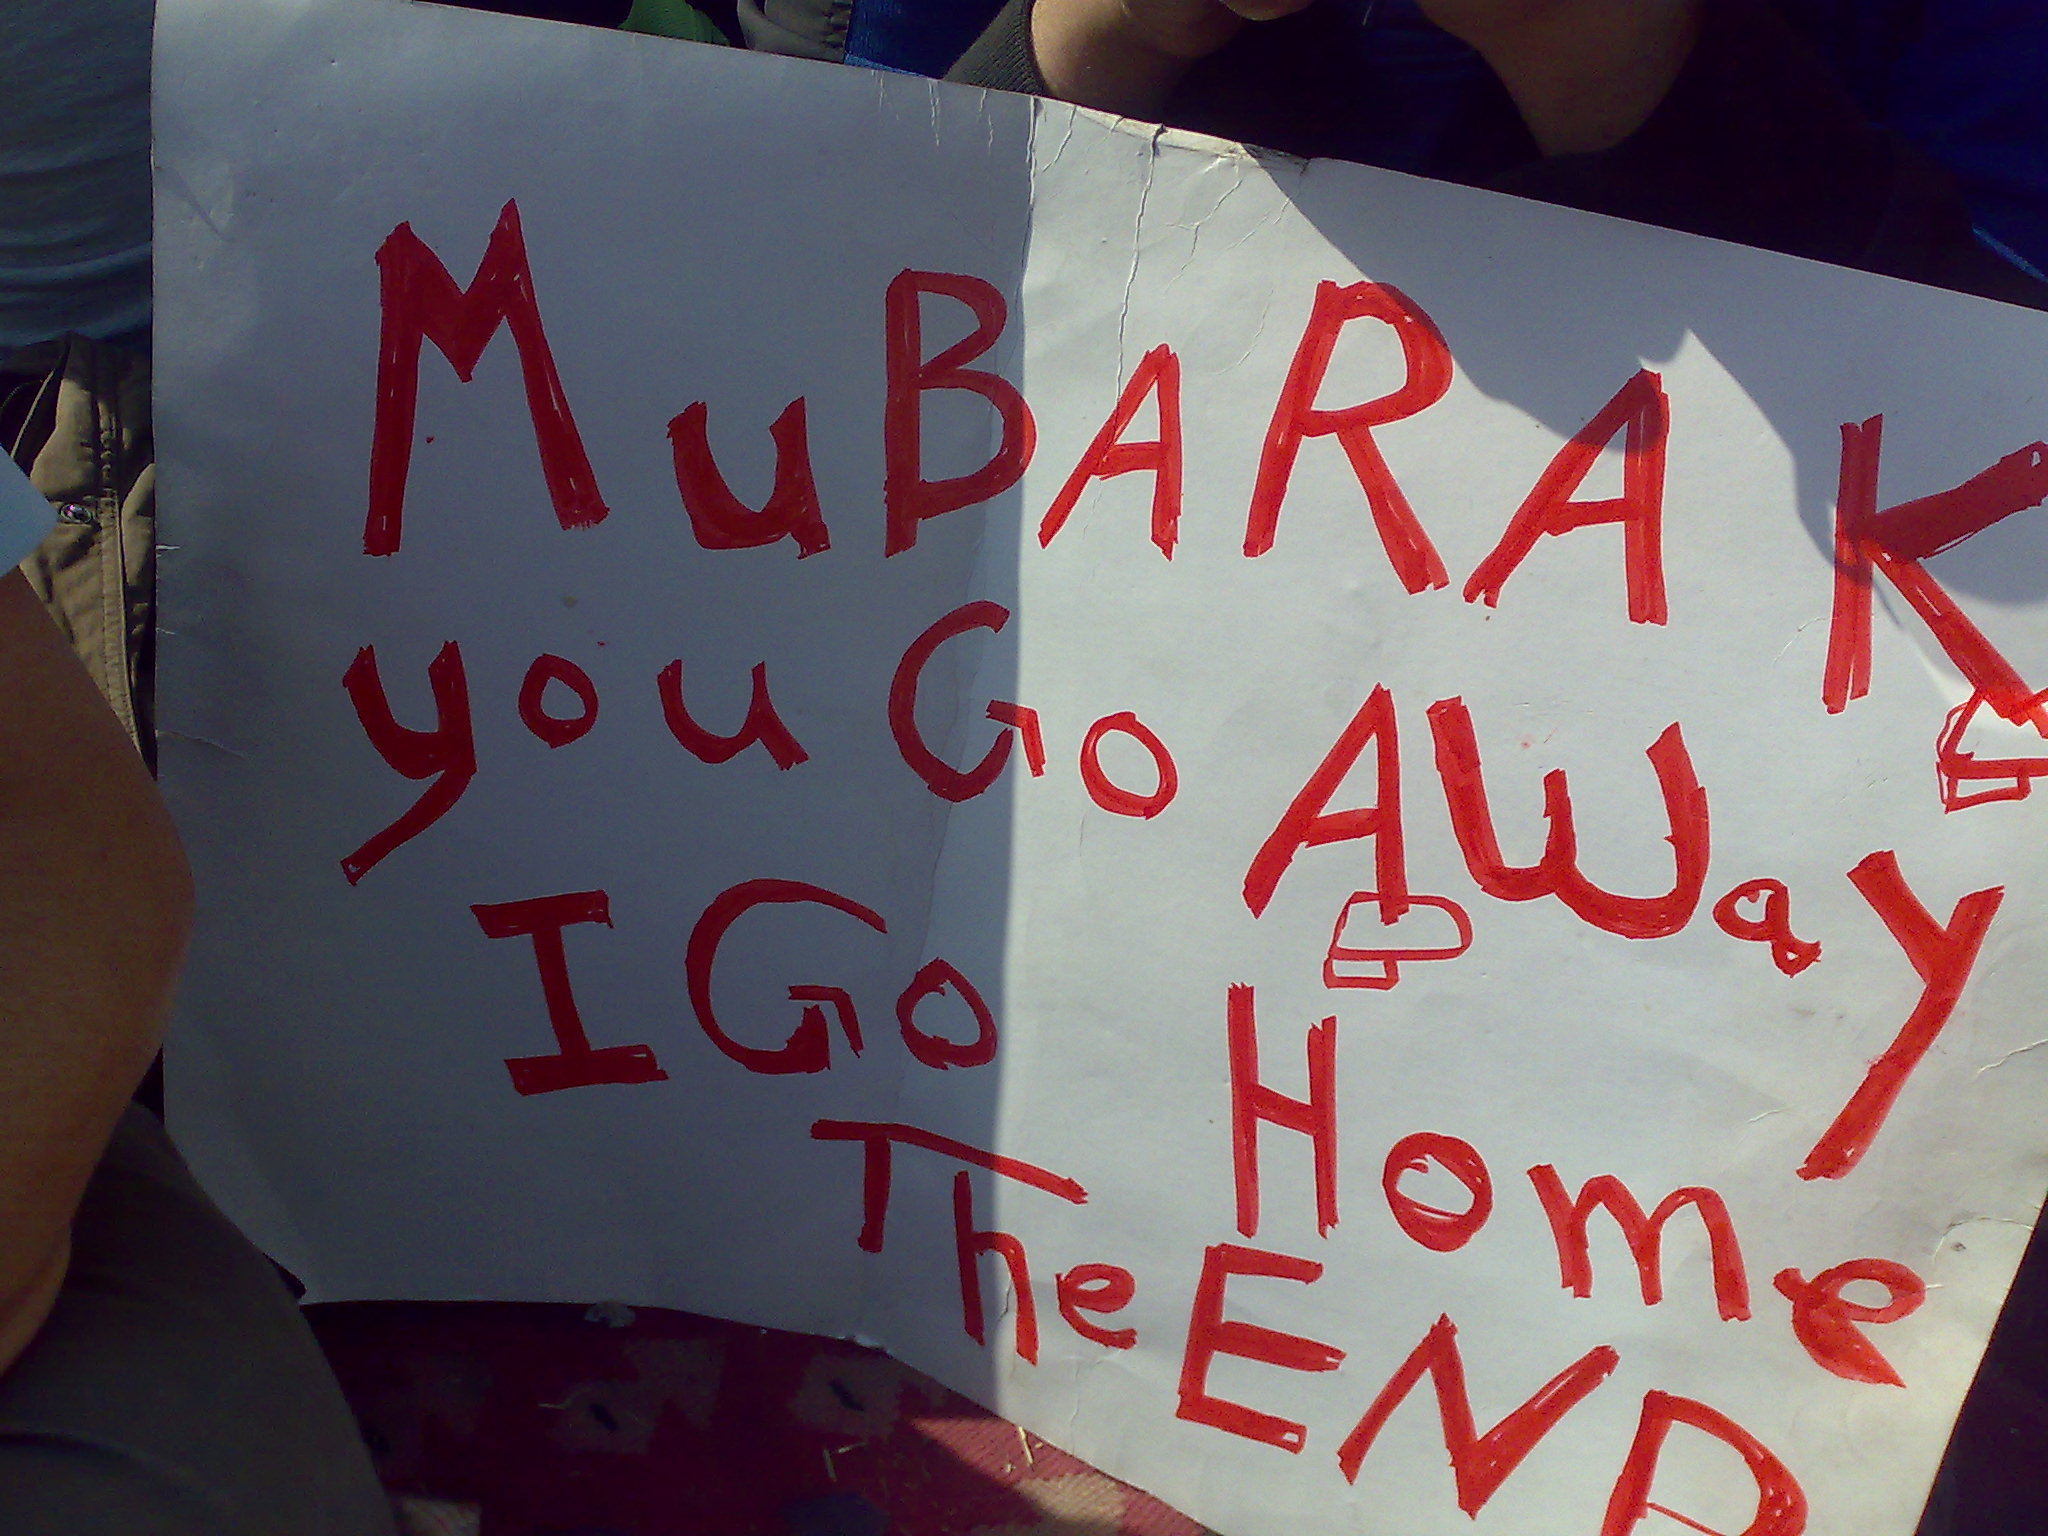 MuBARAK
you Go AWay
I Go Home
The END